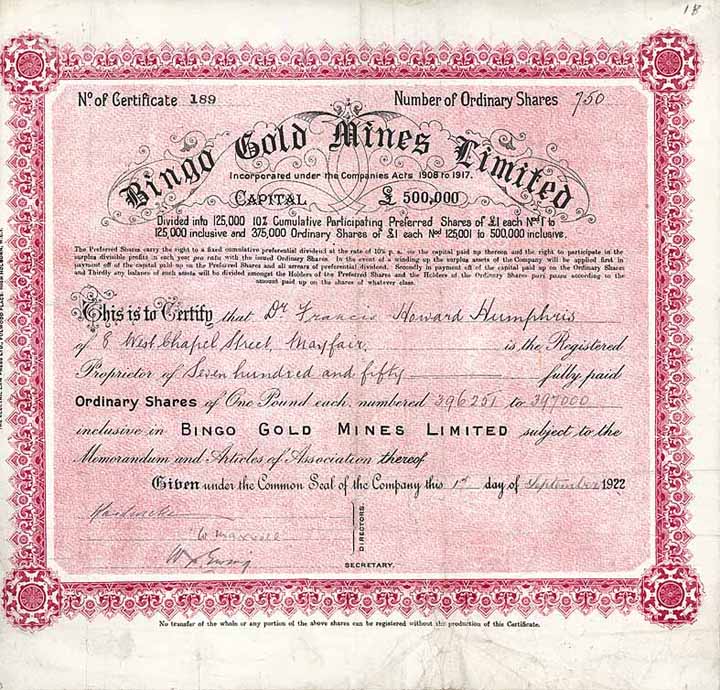 18
No of Certificate 189 Number of Ordinary Shares 750
Bingo Gold Mines Limited
Incorporated under the Companies Acts 1908 to 1917.
CAPITAL £ 500,000
Divided into 125,000 10% Cumulative Participating Preferred Shares of £1 each Nos 1 to
125,000 inclusive and 375,000 Ordinary Shares of £1 each Nos 125,001 to 500,000 inclusive.
The Preferred Shares carry the right to a fixed cumulative preferential dividend at the rate of 10% p. a. on the capital paid up thereon and the right to participate in the
surplus divisible profits in each year pro rata with the issued Ordinary Shares. In the event of a winding up the surplus assets of the Company will be applied first in
payment off of the capital paid up on the Preferred Shares and all arrears of preferential dividend. Secondly in payment off of the capital paid up on the Ordinary Shares
and Thirdly any balance of such assets will be divided amongst the Holders of the Preferred Shares and the Holders of the Ordinary Shares pari passu according to the
amount paid up on the shares of whatever class.
This is to Certify that Dr. Francis Howard Humphris
of 8 West Chapel Street, Mayfair, is the Registered
Proprietor of Seven hundred and fifty fully paid
Ordinary Shares of One Pound each, numbered 396251 to 397000
inclusive in BINGO GOLD MINES LIMITED subject to the
Memorandum and Articles of Association thereof
Given under the Common Seal of the Company this 1st day of September 1922
Hardwicke
DIRECTORS.
SECRETARY.
No transfer of the whole or any portion of the above shares can be registered without the production of this Certificate.